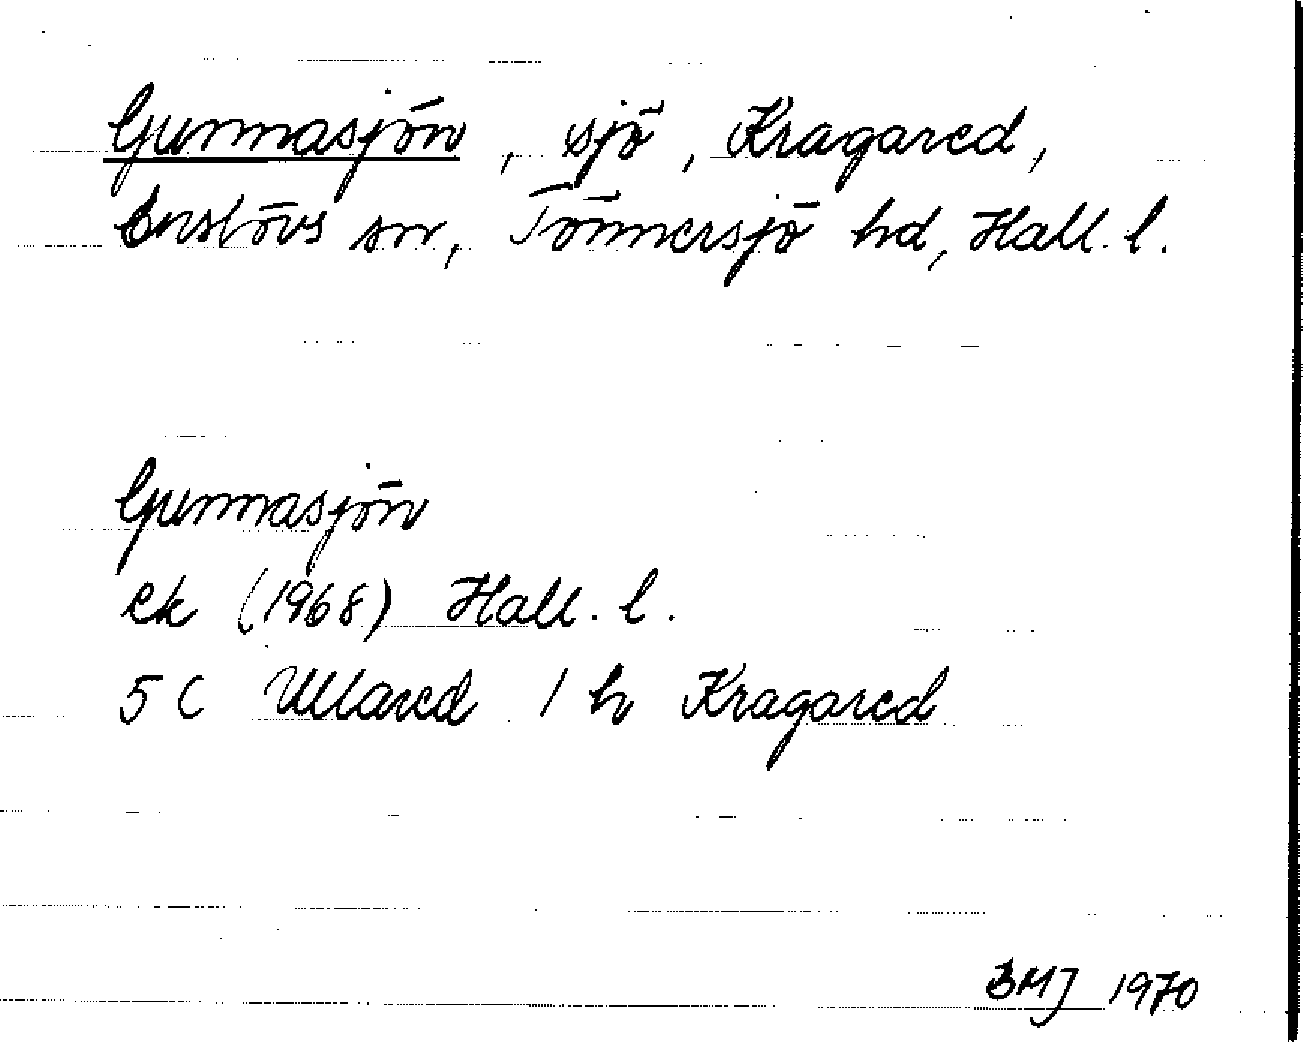 Gunnasjön, sjö, Kragared,
Enslövs sn, Tönnersjö hd, Hall. l.
Gunnasjön
ek (1968) Hall. l.
5 C Ullared 1 h Kragared
BMJ 1970